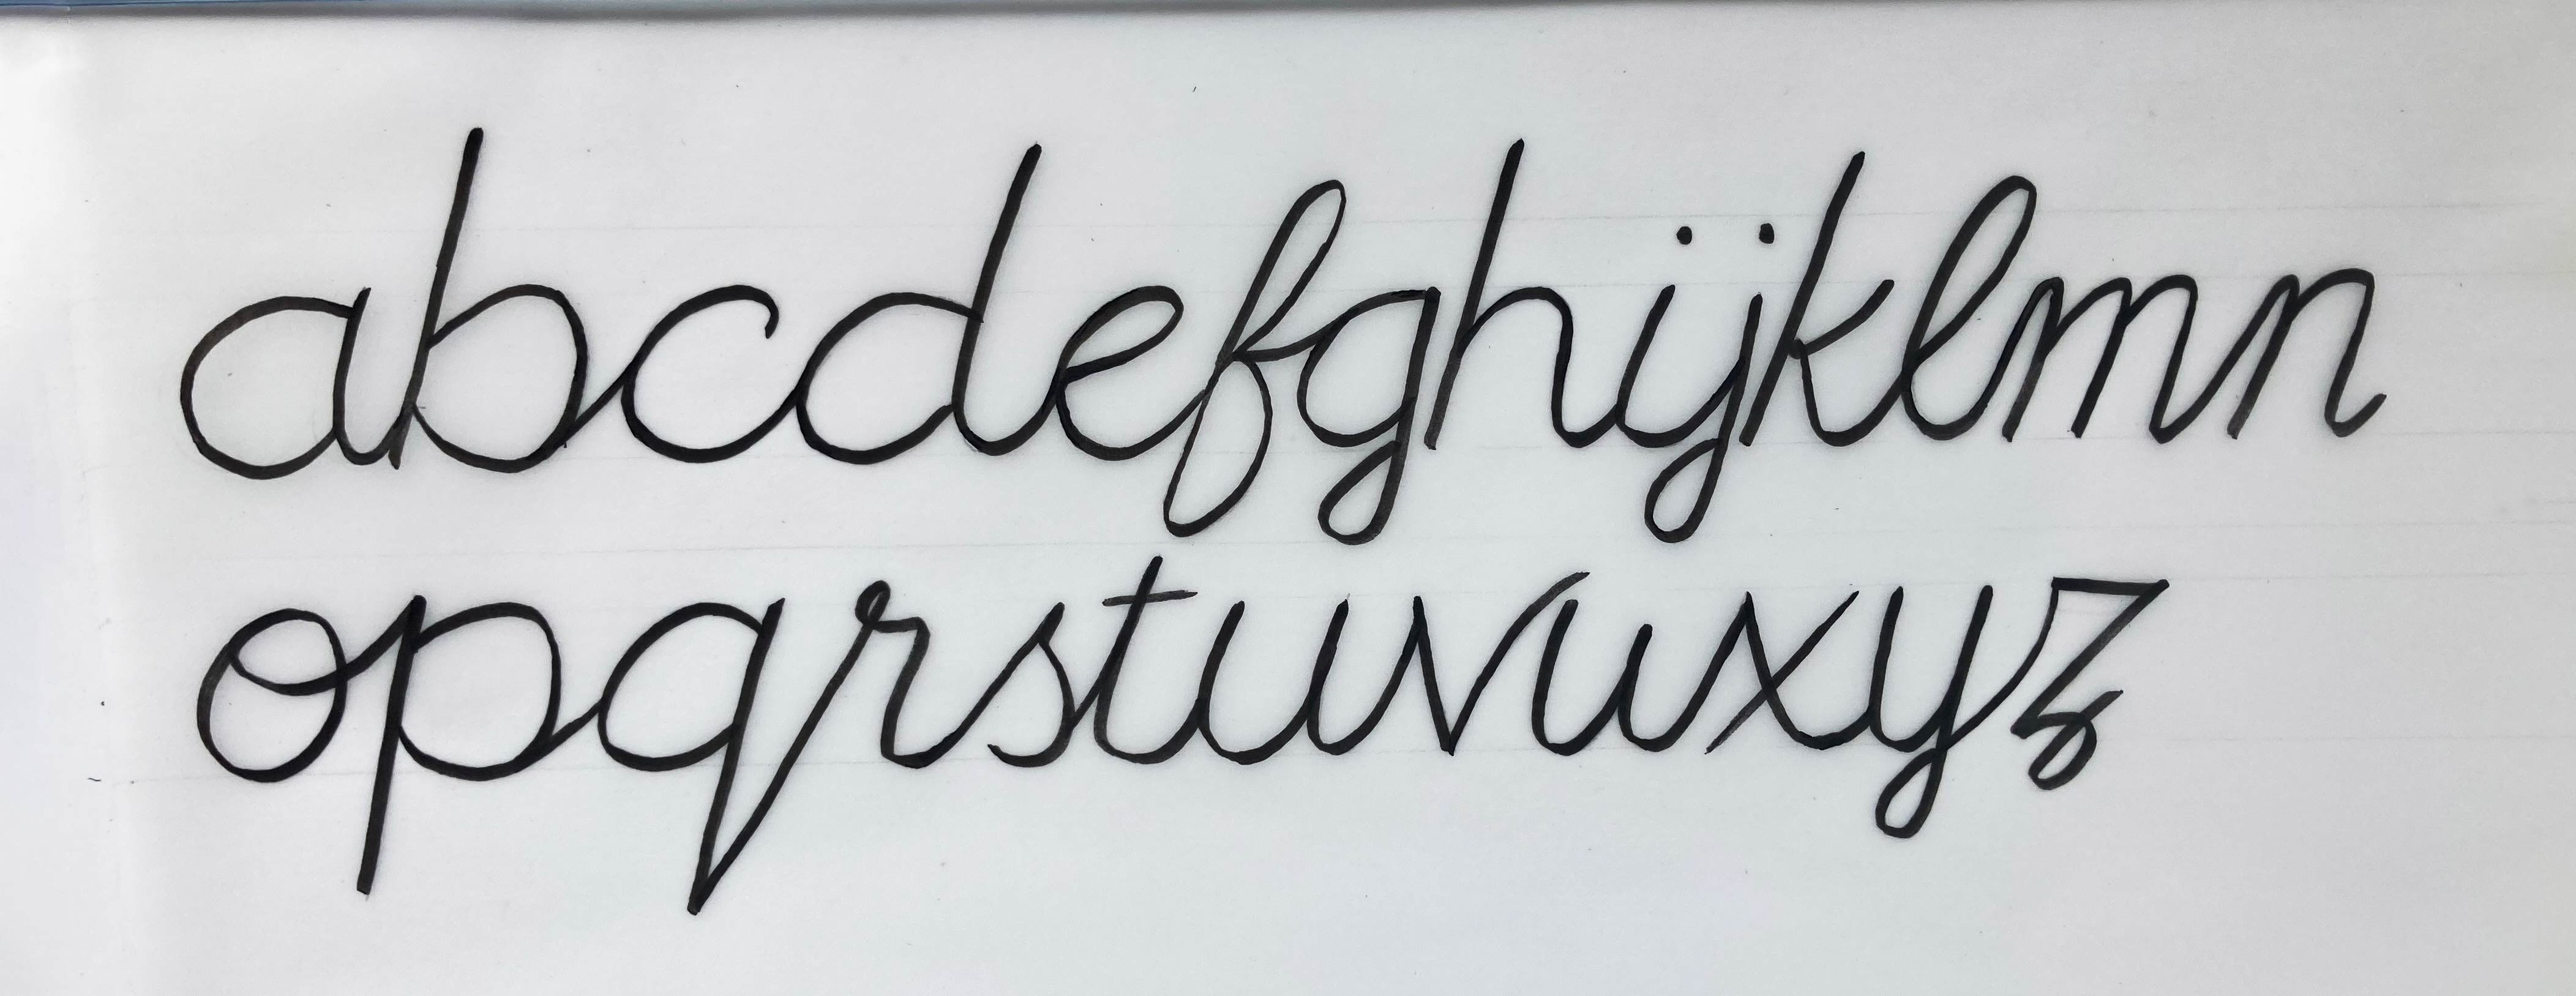 abcdefghijklmn
opqrstuvwxyz